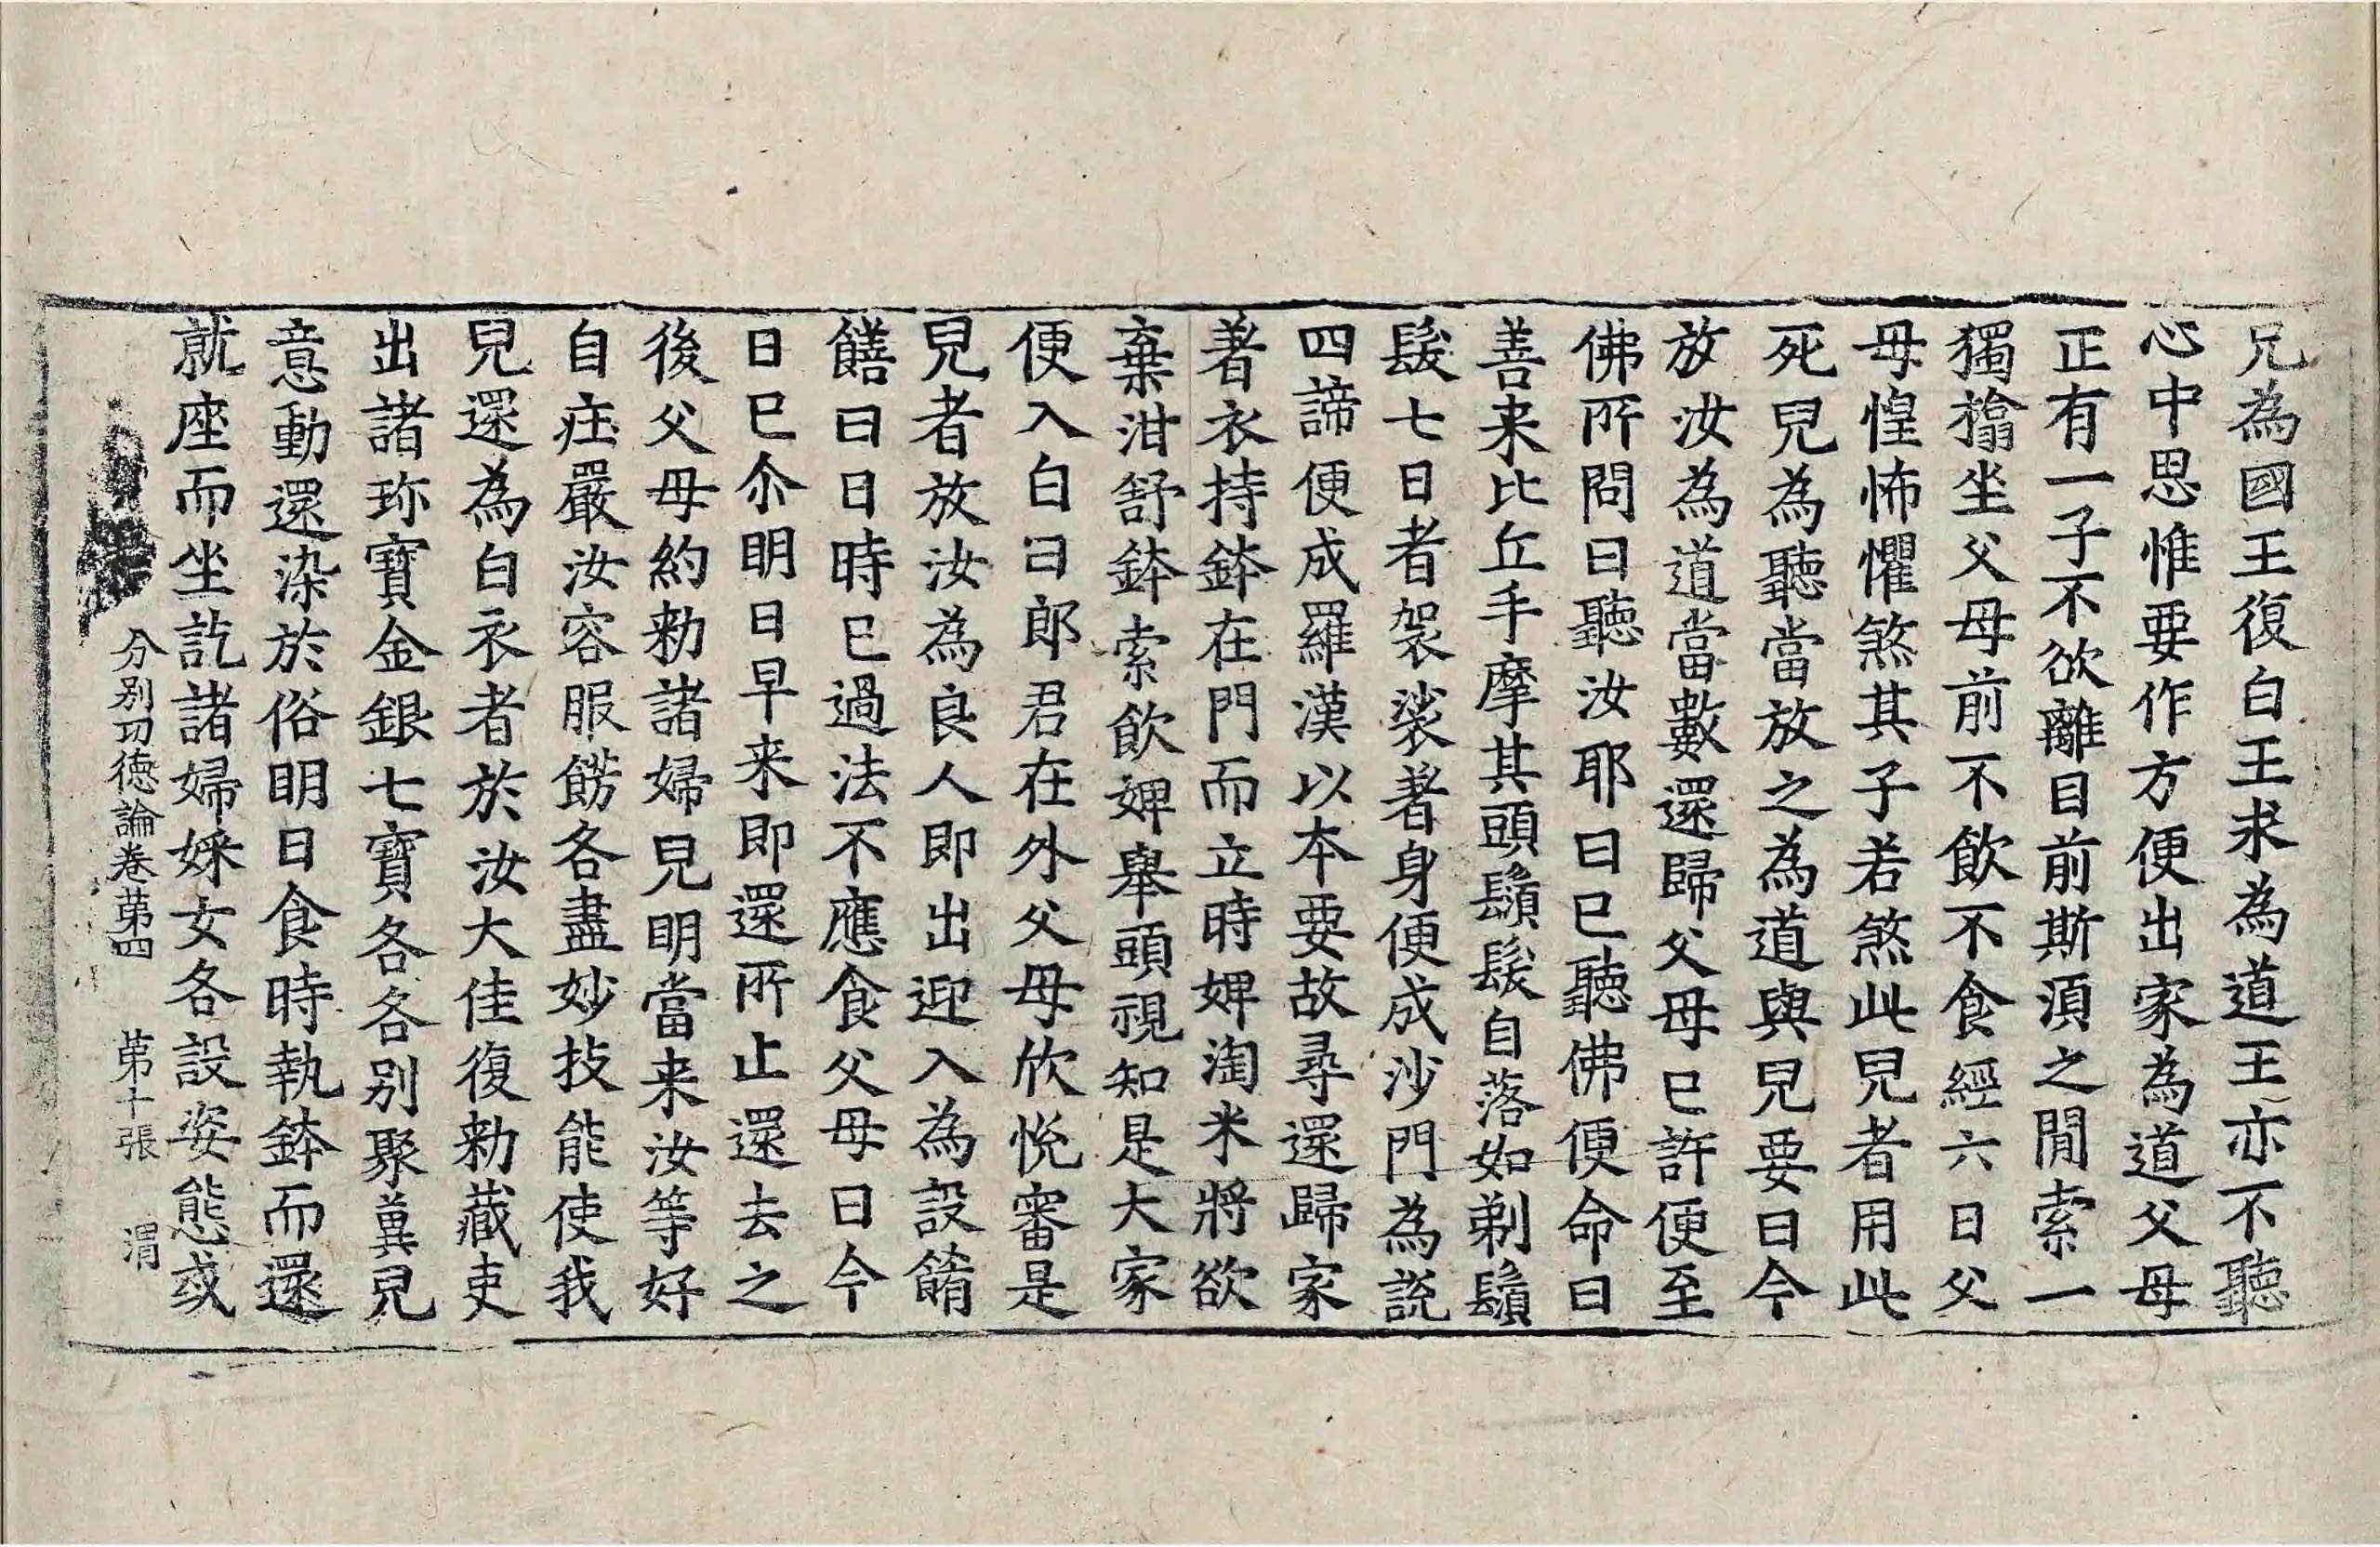 兄為國王復白王求為道王亦不聽
心中思惟要作方便出家為道父母
正有一子不欲離目前斯湏之閒索一
獨搨坐父母前不飲不食經六日父
母惶怖懼煞其子若煞此兒者用此
死兒為聽當放之為道與兒要曰今
放汝為道當數還歸父母已許便至
佛所問曰聽汝耶曰已聽佛便命曰
善来比丘手摩其頭鬚髮自落如剃鬚
髮七日者袈裟著身便成沙門為說
四諦便成羅漢以本要故尋還歸家
著衣持鉢在門而立時婢淘米將欲
棄泔舒鉢索飲婢舉頭視知是大家
便入白曰郎君在外父母欣悅審是
兒者放汝為良人即出迎入為設餚
饍曰日時已過法不應食父母曰今
日已尒明日早来即還所止還去之
後父母約勑諸婦兒明當来汝等好
自庄嚴汝容服餝各盡妙技能使我
兒還為白衣者於汝大佳復勑藏吏
出諸珎寶金銀七寶各各別聚兾兒
意動還染於俗明日食時執鉢而還
就座而坐訖諸婦婇女各設姿態或
分別功德論卷苐四　苐十張　渭